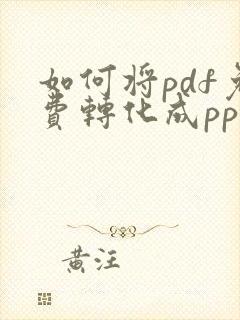 如何将pdf免
費轉化成pp
黃汪